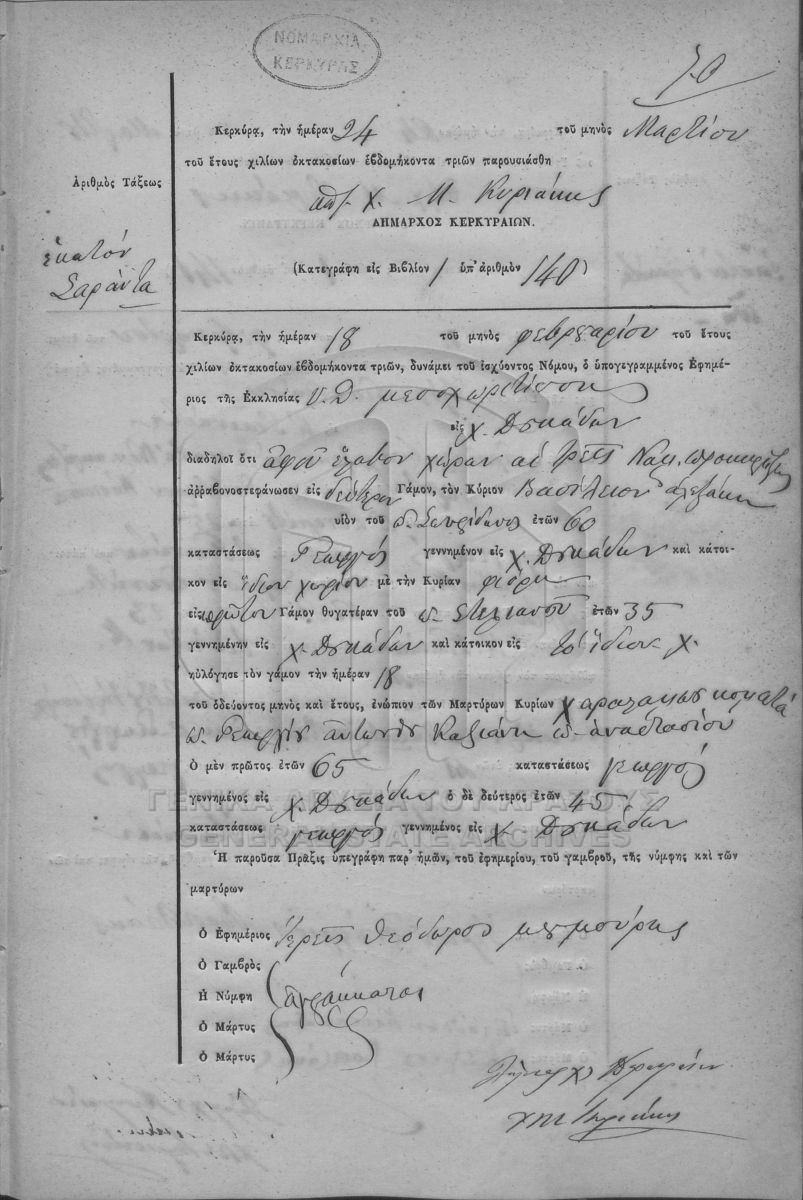 ΝΟΜΑΡΧΙΑ
ΚΕΡΚΥΡΑΣ
70
Κερκύρᾳ, τὴν ἡμέραν 24 τοῦ μηνὸς Μαρτίου
τοῦ ἔτους χιλίων ὀκτακοσίων ἑβδομήκοντα τριῶν παρουσιάσθη
Χ. Μ. Κυριάκης
ΔΗΜΑΡΧΟΣ ΚΕΡΚΥΡΑΙΩΝ.
Ἀριθμὸς Τάξεως
ἑκατόν
Σαράντα
(Κατεγράφη εἰς Βιβλίον 1 ὑπ' ἀριθμὸν 140)
Κερκύρᾳ, τὴν ἡμέραν 18 τοῦ μηνὸς φεβρουαρίου τοῦ ἔτους
χιλίων ὀκτακοσίων ἑβδομήκοντα τριῶν, δυνάμει τοῦ ἰσχύοντος Νόμου, ὁ ὑπογεγραμμένος Ἐφημέ-
ριος τῆς Ἐκκλησίας Υ. Θ. μεσοχωρίτισσης
εἰς χ. Δουκάδων
διαδηλοῖ ὅτι ἀφοῦ ἔλαβον χώραν αἱ τρεῖς
ἀῤῥαβονοστεφάνωσεν εἰς δεύτερον Γάμον, τὸν Κύριον Βασίλειον αλεξάκη
υἱὸν τοῦ π. Σπυρίδωνος ἐτῶν 60
καταστάσεως Γεωργός γεννημένον εἰς χ. Δουκάδων καὶ κάτοι-
κον εἰς ἴδιον χωρίον μὲ τὴν Κυρίαν φιόρη
εἰς πρῶτον Γάμον θυγατέραν τοῦ π. Στυλιανοῦ ἐτῶν 35
γεννημένην εἰς χ. Δουκάδων καὶ κάτοικον εἰς τό ἴδιον χ.
ηὐλόγησε τὸν γάμον τὴν ἡμέραν 18
τοῦ ὁδεύοντος μηνὸς καὶ ἔτους, ἐνώπιον τῶν Μαρτύρων Κυρίων Χαραλάμπους
π. Γεωργίου ἀντωνίου Καξιάνη π. ἀναστασίου
Ὁ μὲν πρῶτος ἐτῶν 65 καταστάσεως γεωργός
γεννημένος εἰς χ. Δουκάδων ὁ δὲ δεύτερος ἐτῶν 45
ΓΕΝΙΚΑ ΑΡΧΕΙΑ ΤΟΥ ΚΡΑΤΟΥΣ
καταστάσεως γεωργός γεννημένος εἰς χ. Δουκάδων
GENERAL STATE ARCHIVES
Ἡ παροῦσα Πρᾶξις ὑπεγράφη παρ' ἡμῶν, τοῦ ἐφημερίου, τοῦ γαμβροῦ, τῆς νύμφης καὶ τῶν
μαρτύρων
Ὁ Ἐφημέριος Ἱερεύς Θεόδωρος μουμούρης
Ὁ Γαμβρὸς
Ἡ Νύμφη ἀγράμματοι
Ὁ Μάρτυς
Ὁ Μάρτυς